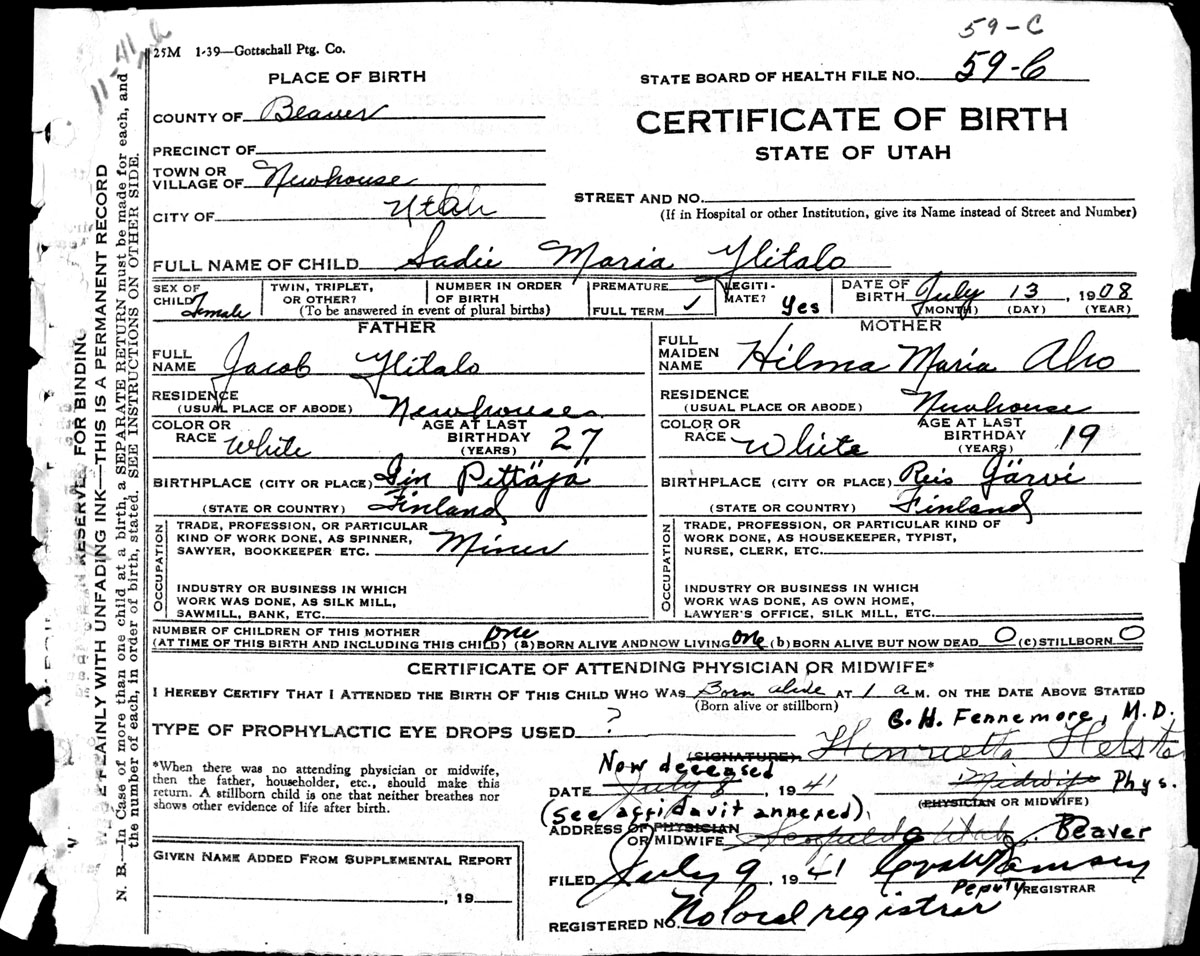 59-C
25M 1-39—Gottschall Ptg. Co.
11-41
PLACE OF BIRTH
STATE BOARD OF HEALTH FILE NO. 59-C
COUNTY OF Beaver
CERTIFICATE OF BIRTH
STATE OF UTAH
PRECINCT OF
TOWN OR VILLAGE OF Newhouse
CITY OF Utah
STREET AND NO.
(If in Hospital or other Institution, give its Name instead of Street and Number)
FULL NAME OF CHILD Sadie Maria Ylitalo
SEX OF CHILD Female
TWIN, TRIPLET, OR OTHER?
NUMBER IN ORDER OF BIRTH
(To be answered in event of plural births)
PREMATURE
FULL TERM ✓
LEGITIMATE? Yes
DATE OF BIRTH July 13, 1908
(MONTH) (DAY) (YEAR)
FATHER
FULL NAME Jacob Ylitalo
RESIDENCE (USUAL PLACE OF ABODE) Newhouse
COLOR OR RACE White
AGE AT LAST BIRTHDAY (YEARS) 27
BIRTHPLACE (CITY OR PLACE) Pittäjä
(STATE OR COUNTRY) Finland
OCCUPATION
TRADE, PROFESSION, OR PARTICULAR
KIND OF WORK DONE, AS SPINNER,
SAWYER, BOOKKEEPER ETC. Miner
INDUSTRY OR BUSINESS IN WHICH
WORK WAS DONE, AS SILK MILL,
SAWMILL, BANK, ETC.
MOTHER
FULL MAIDEN NAME Hilma Maria Aho
RESIDENCE (USUAL PLACE OR ABODE) Newhouse
COLOR OR RACE White
AGE AT LAST BIRTHDAY (YEARS) 19
BIRTHPLACE (CITY OR PLACE) Reis Järvi
(STATE OR COUNTRY) Finland
OCCUPATION
TRADE, PROFESSION, OR PARTICULAR KIND OF
WORK DONE, AS HOUSEKEEPER, TYPIST,
NURSE, CLERK, ETC.
INDUSTRY OR BUSINESS IN WHICH
WORK WAS DONE, AS OWN HOME,
LAWYER'S OFFICE, SILK MILL, ETC.
NUMBER OF CHILDREN OF THIS MOTHER
(AT TIME OF THIS BIRTH AND INCLUDING THIS CHILD) one (a) BORN ALIVE AND NOW LIVING one (b) BORN ALIVE BUT NOW DEAD 0 (c) STILLBORN 0
CERTIFICATE OF ATTENDING PHYSICIAN OR MIDWIFE*
I HEREBY CERTIFY THAT I ATTENDED THE BIRTH OF THIS CHILD WHO WAS Born alive AT 1 A M. ON THE DATE ABOVE STATED
(Born alive or stillborn)
TYPE OF PROPHYLACTIC EYE DROPS USED ?
G. H. Fennemore, M.D.
(SIGNATURE) Henrietta
*When there was no attending physician or midwife,
then the father, householder, etc., should make this
return. A stillborn child is one that neither breathes nor
shows other evidence of life after birth.
Now deceased
DATE July 8, 1941 Midwife Phys.
(PHYSICIAN OR MIDWIFE)
(See affidavit annexed)
ADDRESS OF PHYSICIAN OR MIDWIFE Scofield Utah. Beaver
GIVEN NAME ADDED FROM SUPPLEMENTAL REPORT
, 19
FILED July 9, 1941 Ramsey
Deputy REGISTRAR
REGISTERED NO. No local registrar
RESERVED FOR BINDING
WRITE PLAINLY WITH UNFADING INK—THIS IS A PERMANENT RECORD
N. B.—In Case of more than one child at a birth, a SEPARATE RETURN must be made for each, and
the number of each, in order of birth, stated. SEE INSTRUCTIONS ON OTHER SIDE.